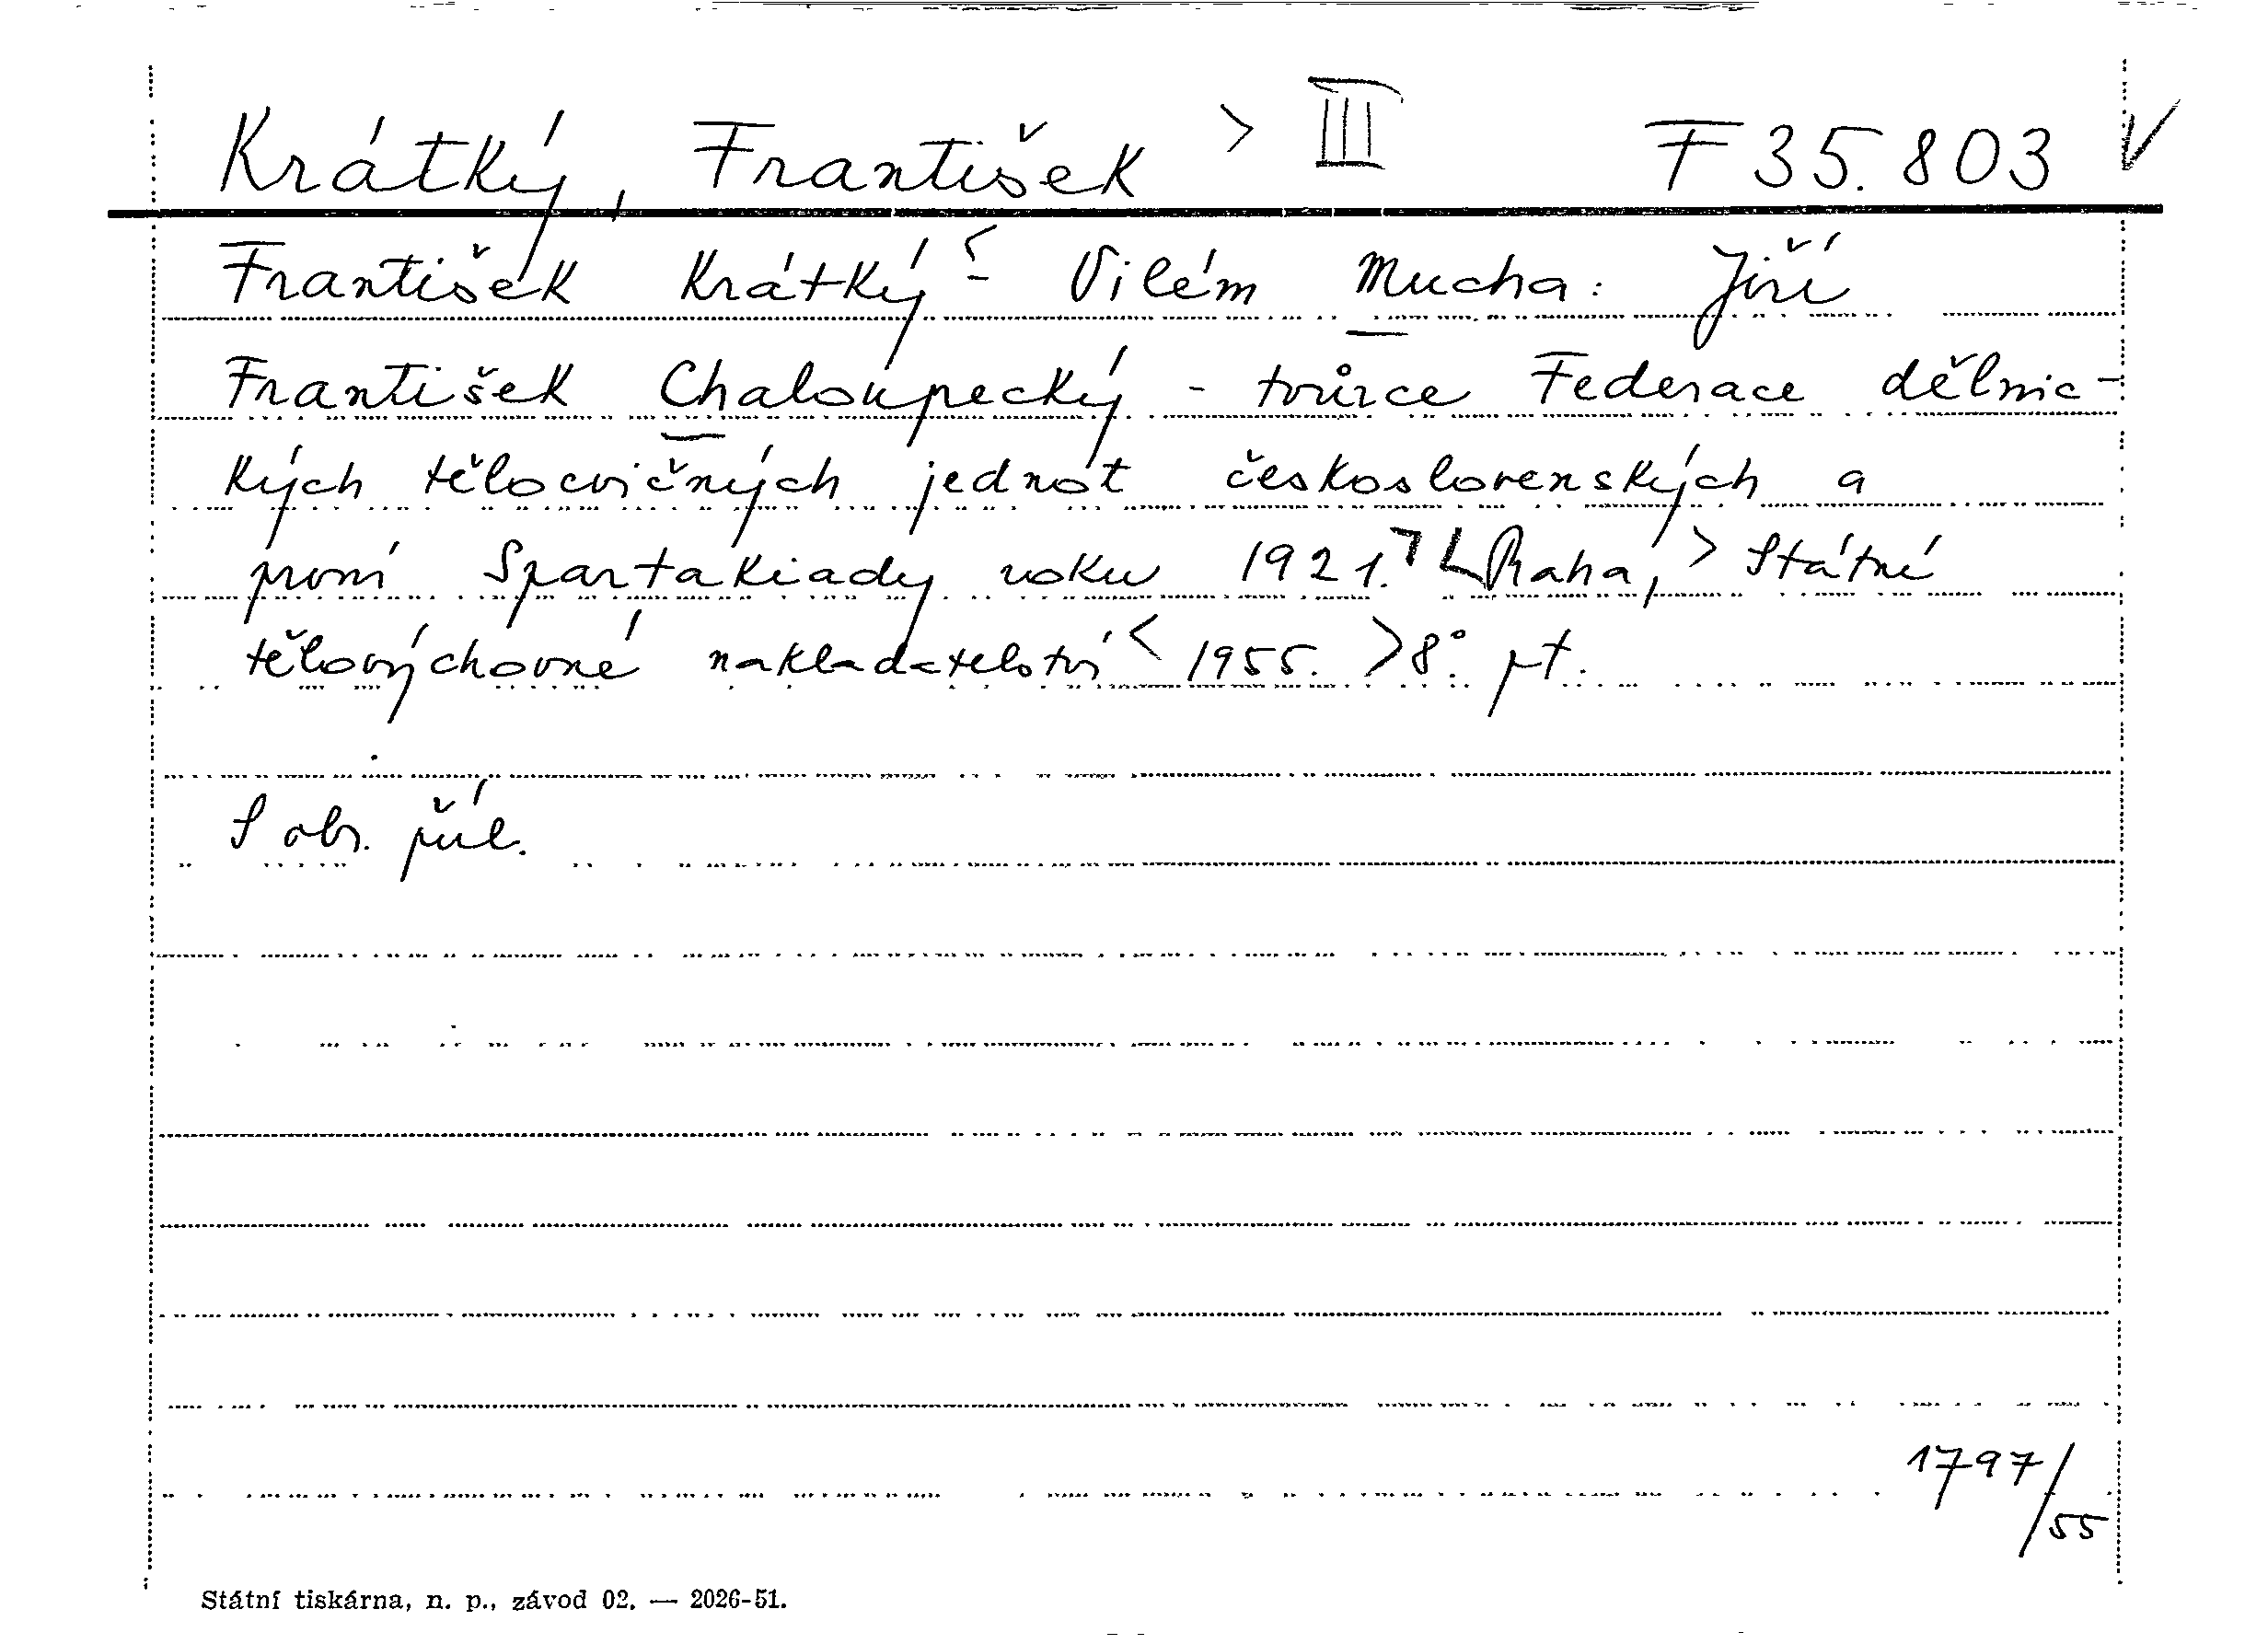 Krátký, František > III F 35.803 V
František Krátký < - Vilém Mucha: Jiří
František Chaloupecký - tvůrce Federace dělnic-
kých tělocvičných jednot československých a
první Spartakiady roku 1921. Praha, > Státní
tělovýchovné nakladatelství < 1955. > 8°. pt.
S obr. příl.
1797/55
Státní tiskárna, n. p., závod 02. — 2026-51.